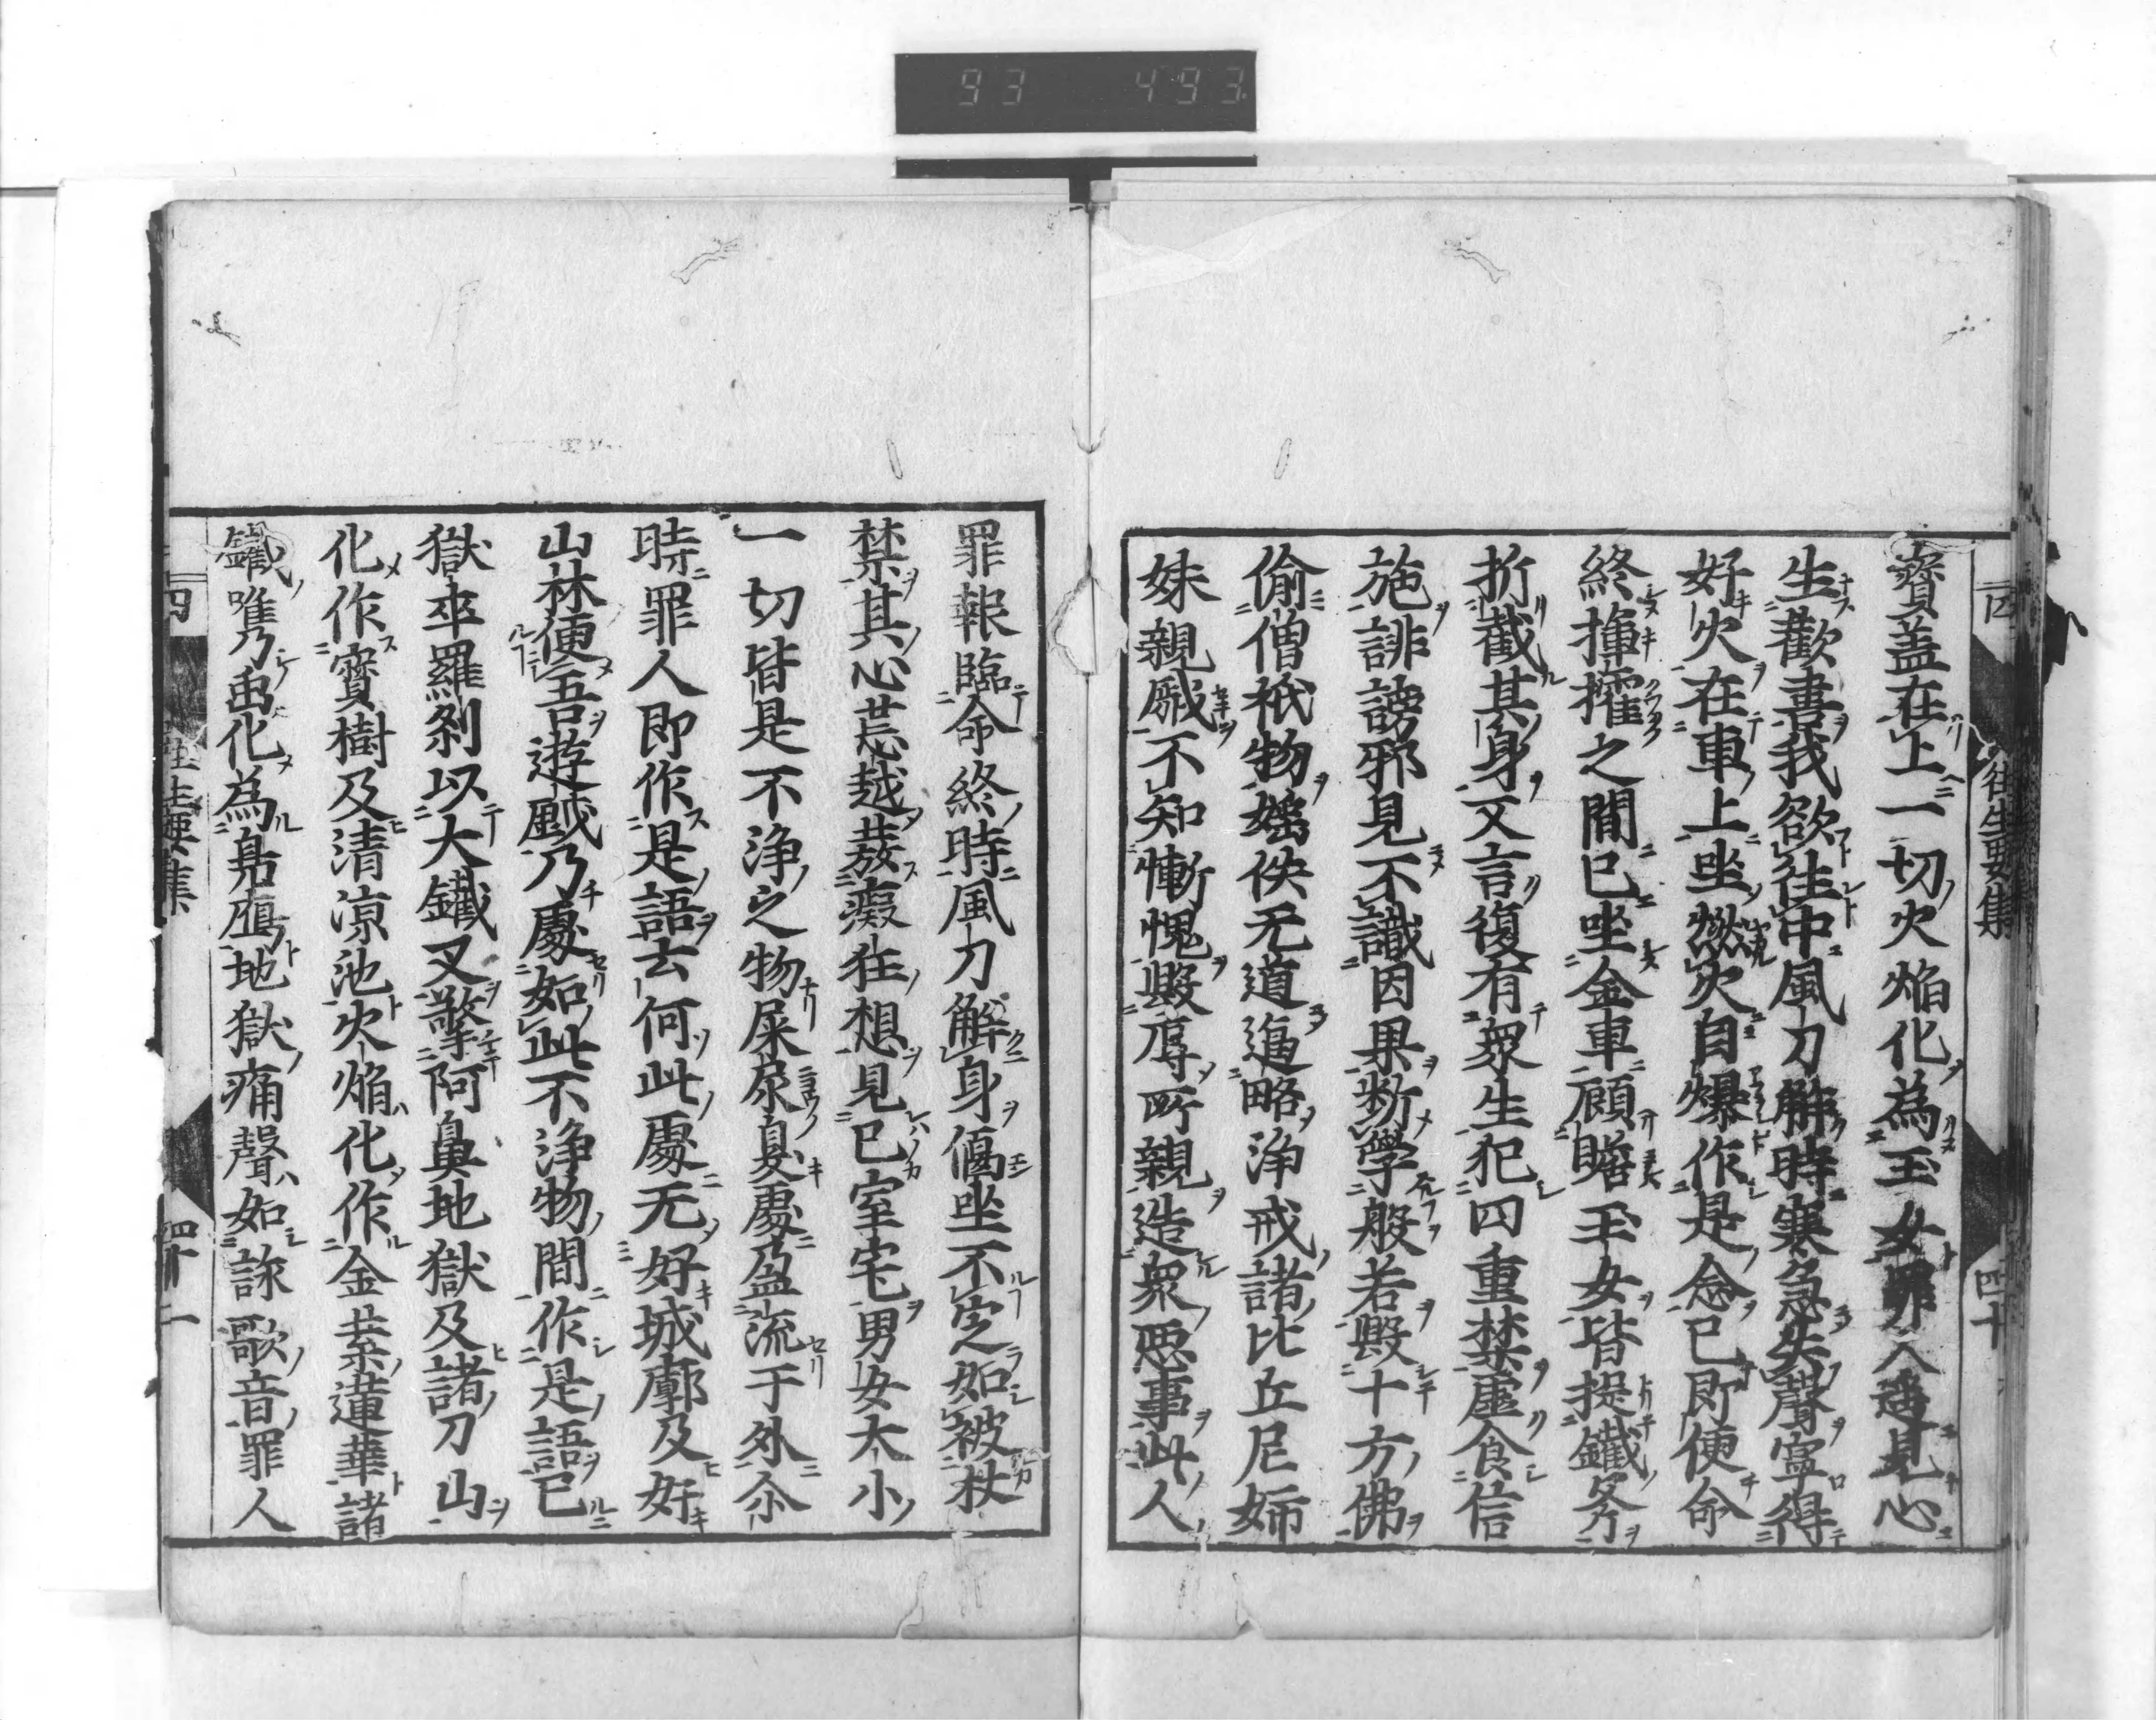 93 493
寳盖在上一切火焔化為玉女罪人遥見心
生歡喜我欲往中風刀解時寒急失聲寧得
好火在車上坐燃火自爆作是念已即便命
終揮攉之間已坐金車顧瞻玉女皆捉鐵斧
折截其身又言復有衆生犯四重禁虗食信
施誹謗邪見不識因果斷學般若毀十方佛
偷僧祇物婬佚无道逼略淨戒諸比丘尼姉
妹親戚不知慚愧毀辱所親造衆悪事此人
往生要集
四十
罪報臨命終時風刀解身偃坐不定如被杖
禁其心荒越發癡狂想見已室宅男女大小
一切皆是不浄之物屎尿臭處盈流于外尒
時罪人即作是語云何此處无好城廓及好
山林使吾遊戯乃處如此不浄物間作是語已
獄卒羅刹以大鐵叉擎阿鼻地獄及諸刀山
化作寳樹及清凉池火焔化作金葉蓮華諸
鐵嘴虫化為鳬鴈地獄痛聲如詠歌音罪人
往生要集
四十一